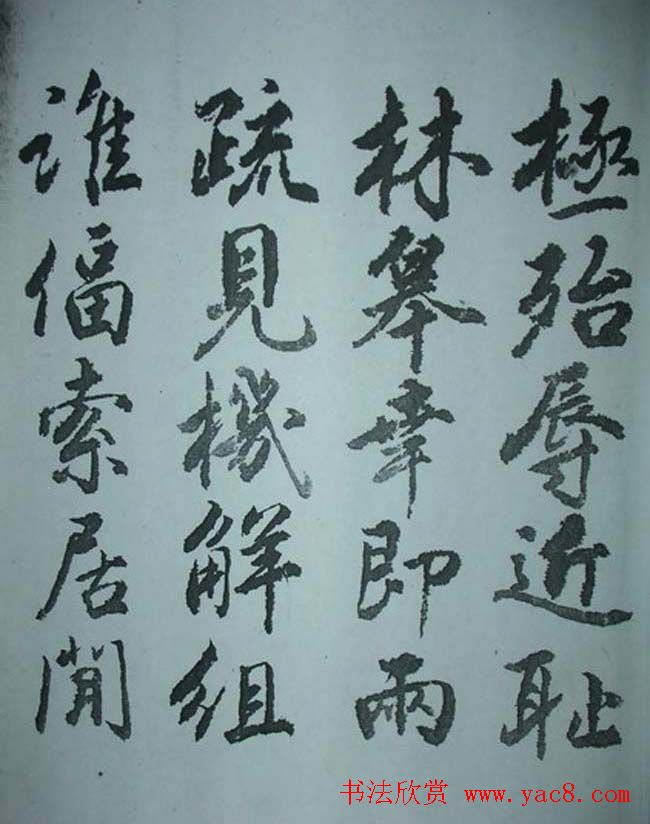 極殆辱近耻
林皋幸即兩
疏見機解組
誰偪索居閒
书法欣赏 www.yac8.com